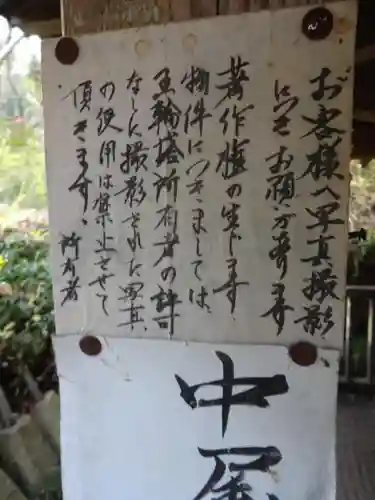 お客様へ写真撮影
につきお願い有ります
著作権の生じます
物件につきましては、
五輪塔所有者の許可
なしに撮影された写真
の使用は禁止させて
頂きます。所有者
中尾